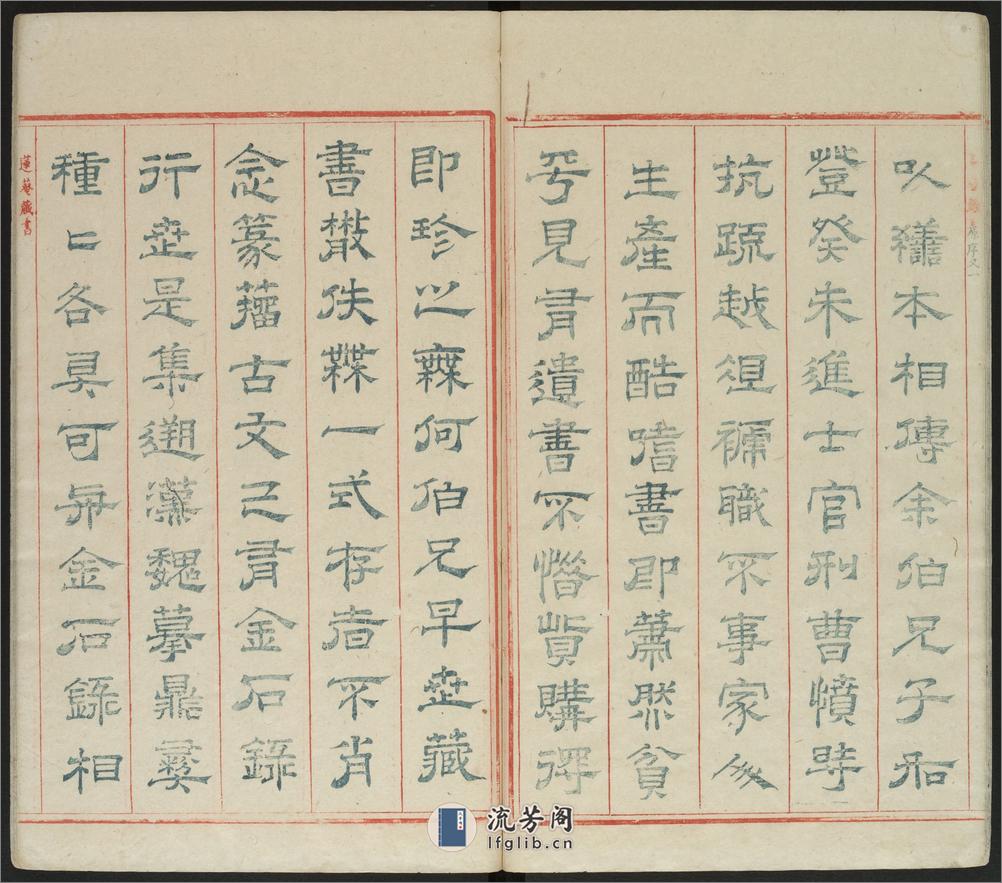 序又一
以本相傳余伯兄子和
登癸未進士官刑曹憤時
抗疏越俎褫職不事家人
生產而酷嗜書即蕭然貧
乎見有遺書不惜貲購得
即珍之無何伯兄早世藏
書散佚一式存者不肖
念篆籀古文已有金石錄
行世是集遡漢魏摹鼎彝
種〻各具可與金石錄相
蓮菴藏書
流芳阁
lfglib.cn